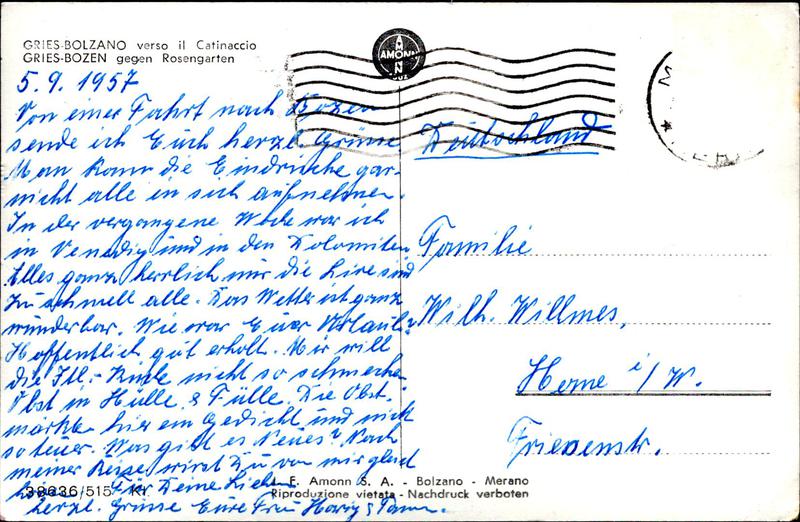 GRIES-BOLZANO verso il Catinaccio
GRIES-BOZEN gegen Rosengarten
AMONN
5.9.1957
Von einer Fahrt nach Bozen
sende ich Euch herzl. Grüsse
Man kann die Eindrücke gar
nicht alle in sich aufnehmen.
In der vergangene Woche war ich
in Venedig und in den Dolomiten
Alles ganz herrlich nur die Lire sind
zu schnell alle. Das Wetter ist ganz
wunderbar. Wie war Euer Urlaub?
Hoffentlich gut erholt. Mir will
die Itl. nicht so schmecken
Obst in Hülle & Fülle. Die Obst-
märkte hier ein Gedicht und nicht
so teuer. Was gibt es Neues? Nach
meiner Reise wirst Du von mir gleich
Für Deine
herzl. Grüsse Eure Frau
Deutschland
Familie
Wilh. Willmes,
Herne i/W.
Friesenstr.
38636/515 Kr
J. F. Amonn S. A. - Bolzano - Merano
Riproduzione vietata - Nachdruck verboten